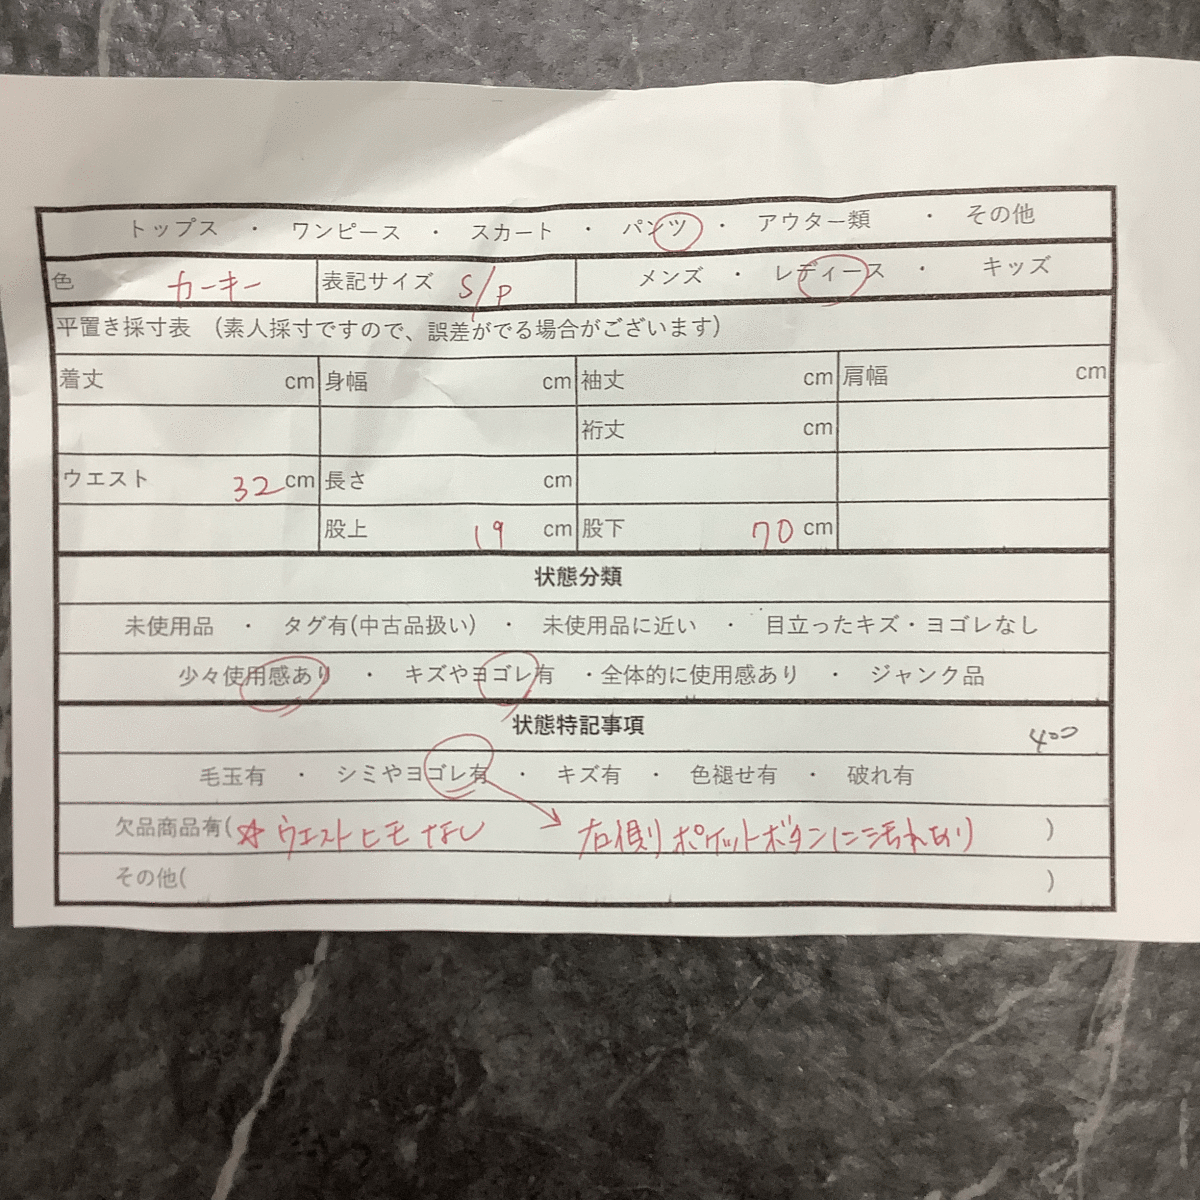 トップス ・ ワンピース ・ スカート ・ パンツ ・ アウター類 ・ その他
色 カーキー 表記サイズ S/P メンズ ・ レディース ・ キッズ
平置き採寸表 (素人採寸ですので、誤差がでる場合がございます)
着丈 cm 身幅 cm 袖丈 cm 肩幅 cm
裄丈 cm
ウエスト 32cm 長さ cm
股上 19 cm 股下 70 cm
状態分類
未使用品 ・ タグ有(中古品扱い) ・ 未使用品に近い ・ 目立ったキズ・ヨゴレなし
少々使用感あり ・ キズやヨゴレ有 ・全体的に使用感あり ・ ジャンク品
状態特記事項 400
毛玉有 ・ シミやヨゴレ有 ・ キズ有 ・ 色褪せ有 ・ 破れ有
欠品商品有(☆ウエストヒモなし → 右側りポケットボタンに汚れあり )
その他( )